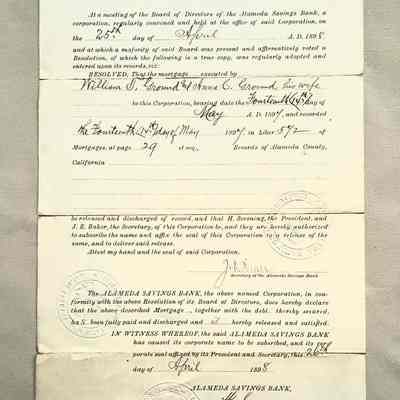 At a meeting of the Board of Directors of the Alameda Savings Bank, a
corporation, regularly convened and held at the office of said Corporation, on
the 25th day of April A. D. 1898,
and at which a majority of said Board was present and affirmatively voted a
Resolution, of which the following is a true copy, was regularly adopted and
entered upon its records, viz:
RESOLVED, That the mortgage executed by
William T. Ground & Anna C. Ground his wife
to this Corporation, bearing date the Fourteenth (14th) day of
May A. D. 1897, and recorded
the Fourteenth (14th) day of May 1897 in Liber 572 of
Mortgages, at page 29 et seq. Records of Alameda County,
California
be released and discharged of record, and that H. Sevening, the President, and
J. E. Baker, the Secretary, of this Corporation be, and they are hereby authorized
to subscribe the name and affix the seal of this Corporation to a release of the
same, and to deliver said release.
Attest my hand and the seal of said Corporation.
Secretary of the Alameda Savings Bank
The ALAMEDA SAVINGS BANK, the above named Corporation, in con-
formity with the above Resolution of its Board of Directors, does hereby declare
that the above described Mortgage, together with the debt thereby secured,
has been fully paid and discharged and is hereby released and satisfied.
IN WITNESS WHEREOF, the said ALAMEDA SAVINGS BANK
has caused its corporate name to be subscribed, and its
porate seal affixed by its President and Secretary, this 26th
day of April 1898
ALAMEDA SAVINGS BANK,